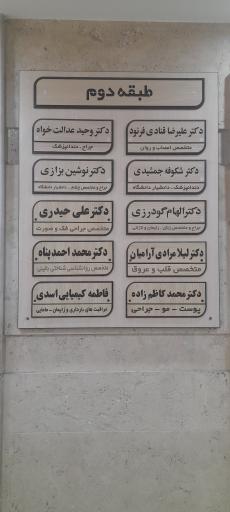 طبقه دوم
دکتر علیرضا قنادی فرنود
متخصص اعصاب و روان
دکتر وحید عدالت خواه
جراح - دندانپزشک
دکتر شکوفه جمشیدی
دندانپزشک - دانشیار دانشگاه
دکتر نوشین بزازی
جراح و متخصص چشم - دانشیار دانشگاه
دکتر الهام گودرزی
جراح و متخصص زنان - زایمان و نازایی
دکتر علی حیدری
متخصص جراحی فک و صورت
دکتر لیلا مرادی آرامیان
متخصص قلب و عروق
دکتر محمد احمدپناه
متخصص روانشناسی شناختی بالینی
دکتر محمد کاظم زاده
پوست - مو - جراحی
فاطمه کیمیایی اسدی
مراقبت های بارداری و زایمان - مامایی